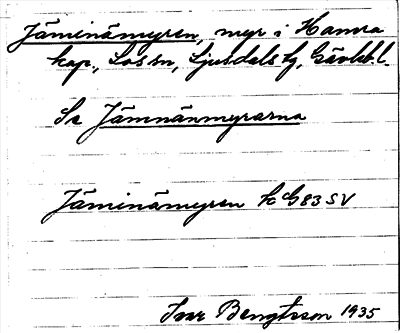 Jäminämyren, myr i Hamra
kap., Los sn, Ljusdals tg, Gävleb. l.
Se Jämnänmyrarna
Jäminämyren kG83SV
Ivar Bengtsson 1935